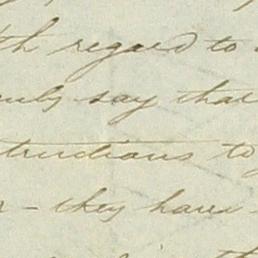 th regard to
only say that
tructions to
- they have